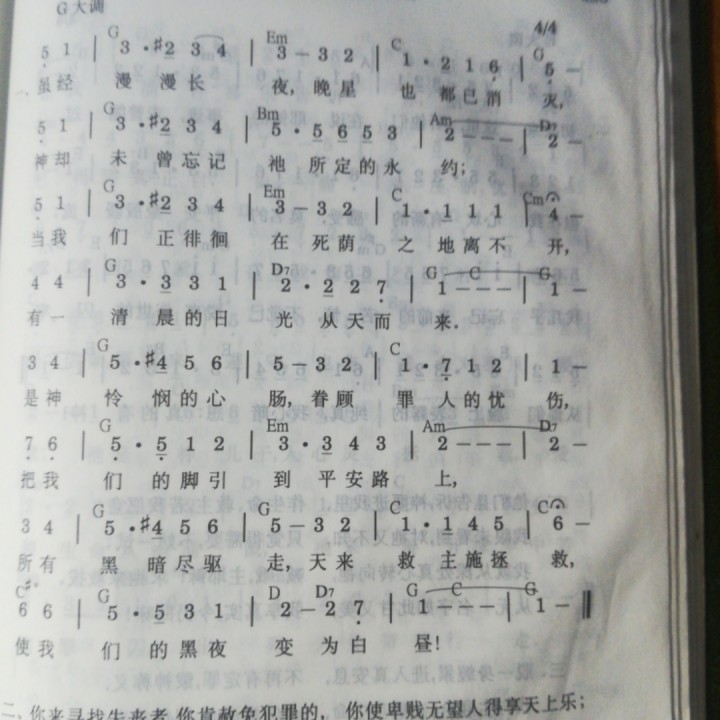 G大调
4/4
G Em C G
5 1 | 3·#2 3 4 | 3 – 3 2 | 1·2 1 6 | 5 –
虽经 漫 漫长 夜, 晚星 也 都已消 灭,
G Bm Am D7
5 1 | 3·#2 3 4 | 5·5 6 5 3 | 2 – – – | 2 –
神却 未 曾忘记 祂 所定的永 约;
G Em C Cm
5 1 | 3·#2 3 4 | 3 – 3 2 | 1·1 1 1 | 4 –
当我 们 正徘徊 在 死荫 之 地离不 开,
G D7 G C G
4 4 | 3·3 3 1 | 2·2 2 7 | 1 – – – | 1 –
有一 清 晨的日 光 从天而 来.
G C
3 4 | 5·#4 5 6 | 5 – 3 2 | 1·7 1 2 | 1 –
是神 怜 悯的心 肠, 眷顾 罪 人的忧 伤,
G Em Am D7
7 6 | 5·5 1 2 | 3·3 4 3 | 2 – – – | 2 –
把我 们 的脚引 到 平安路 上,
G C C
3 4 | 5·#4 5 6 | 5 – 3 2 | 1·1 4 5 | 6 –
所有 黑 暗尽驱 走, 天来 救 主施拯 救,
C#° G D D7 G C G
6 6 | 5·5 3 1 | 2 – 2 7 | 1 – – – | 1 – ‖
使我 们 的黑夜 变 为白 昼!
二、你来寻找失丧者,你肯赦免犯罪的, 你使卑贱无望人得享天上乐;